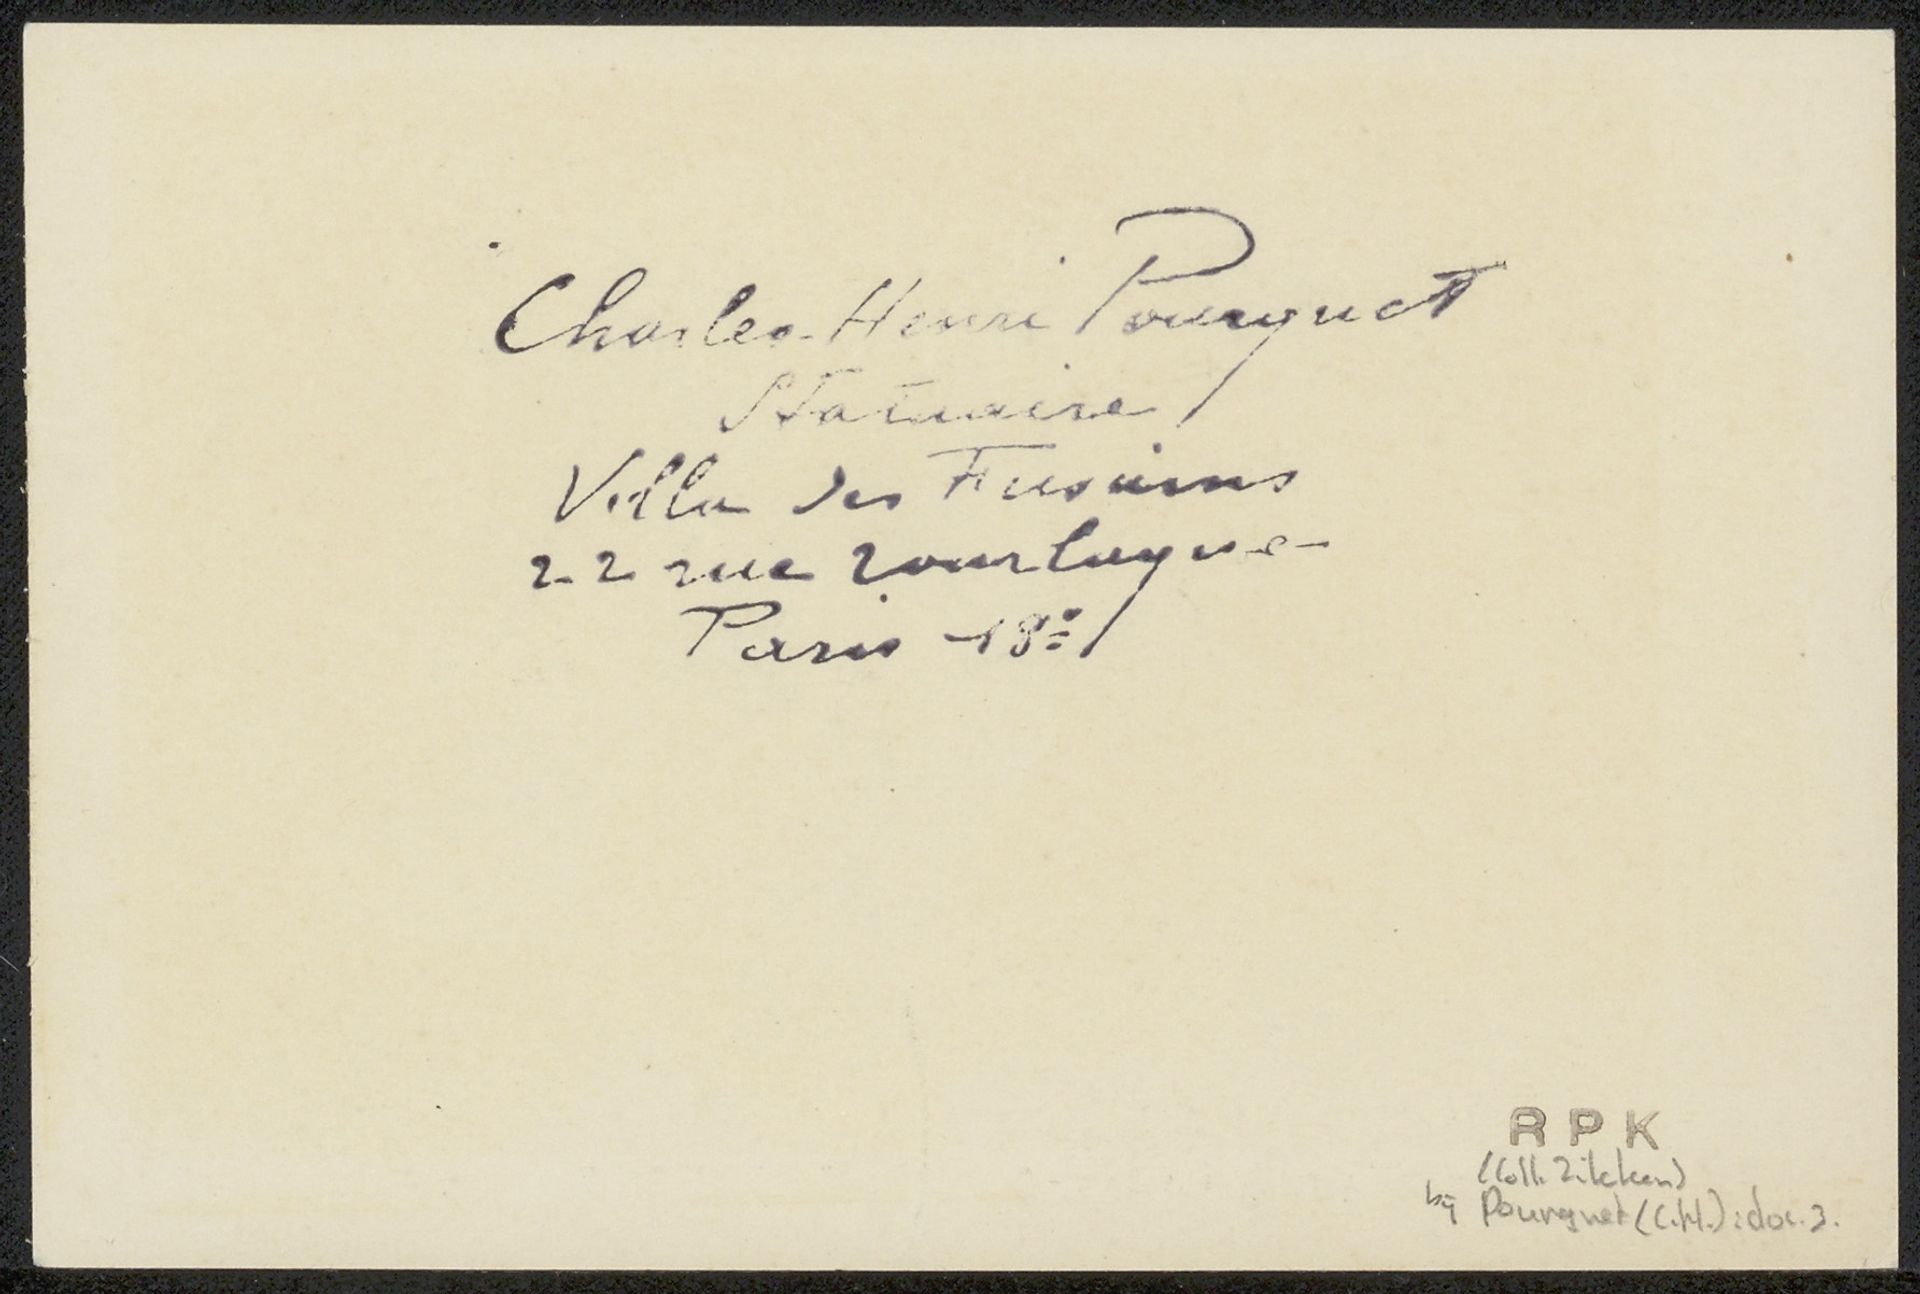 Charles-Henri Pourquet
Statuaire
Villa des Fusains
22 rue Tourlaque
Paris - 18e
RPK
(Coll. Zilcken)
bij Pourquet (C.H.): doc. 3.